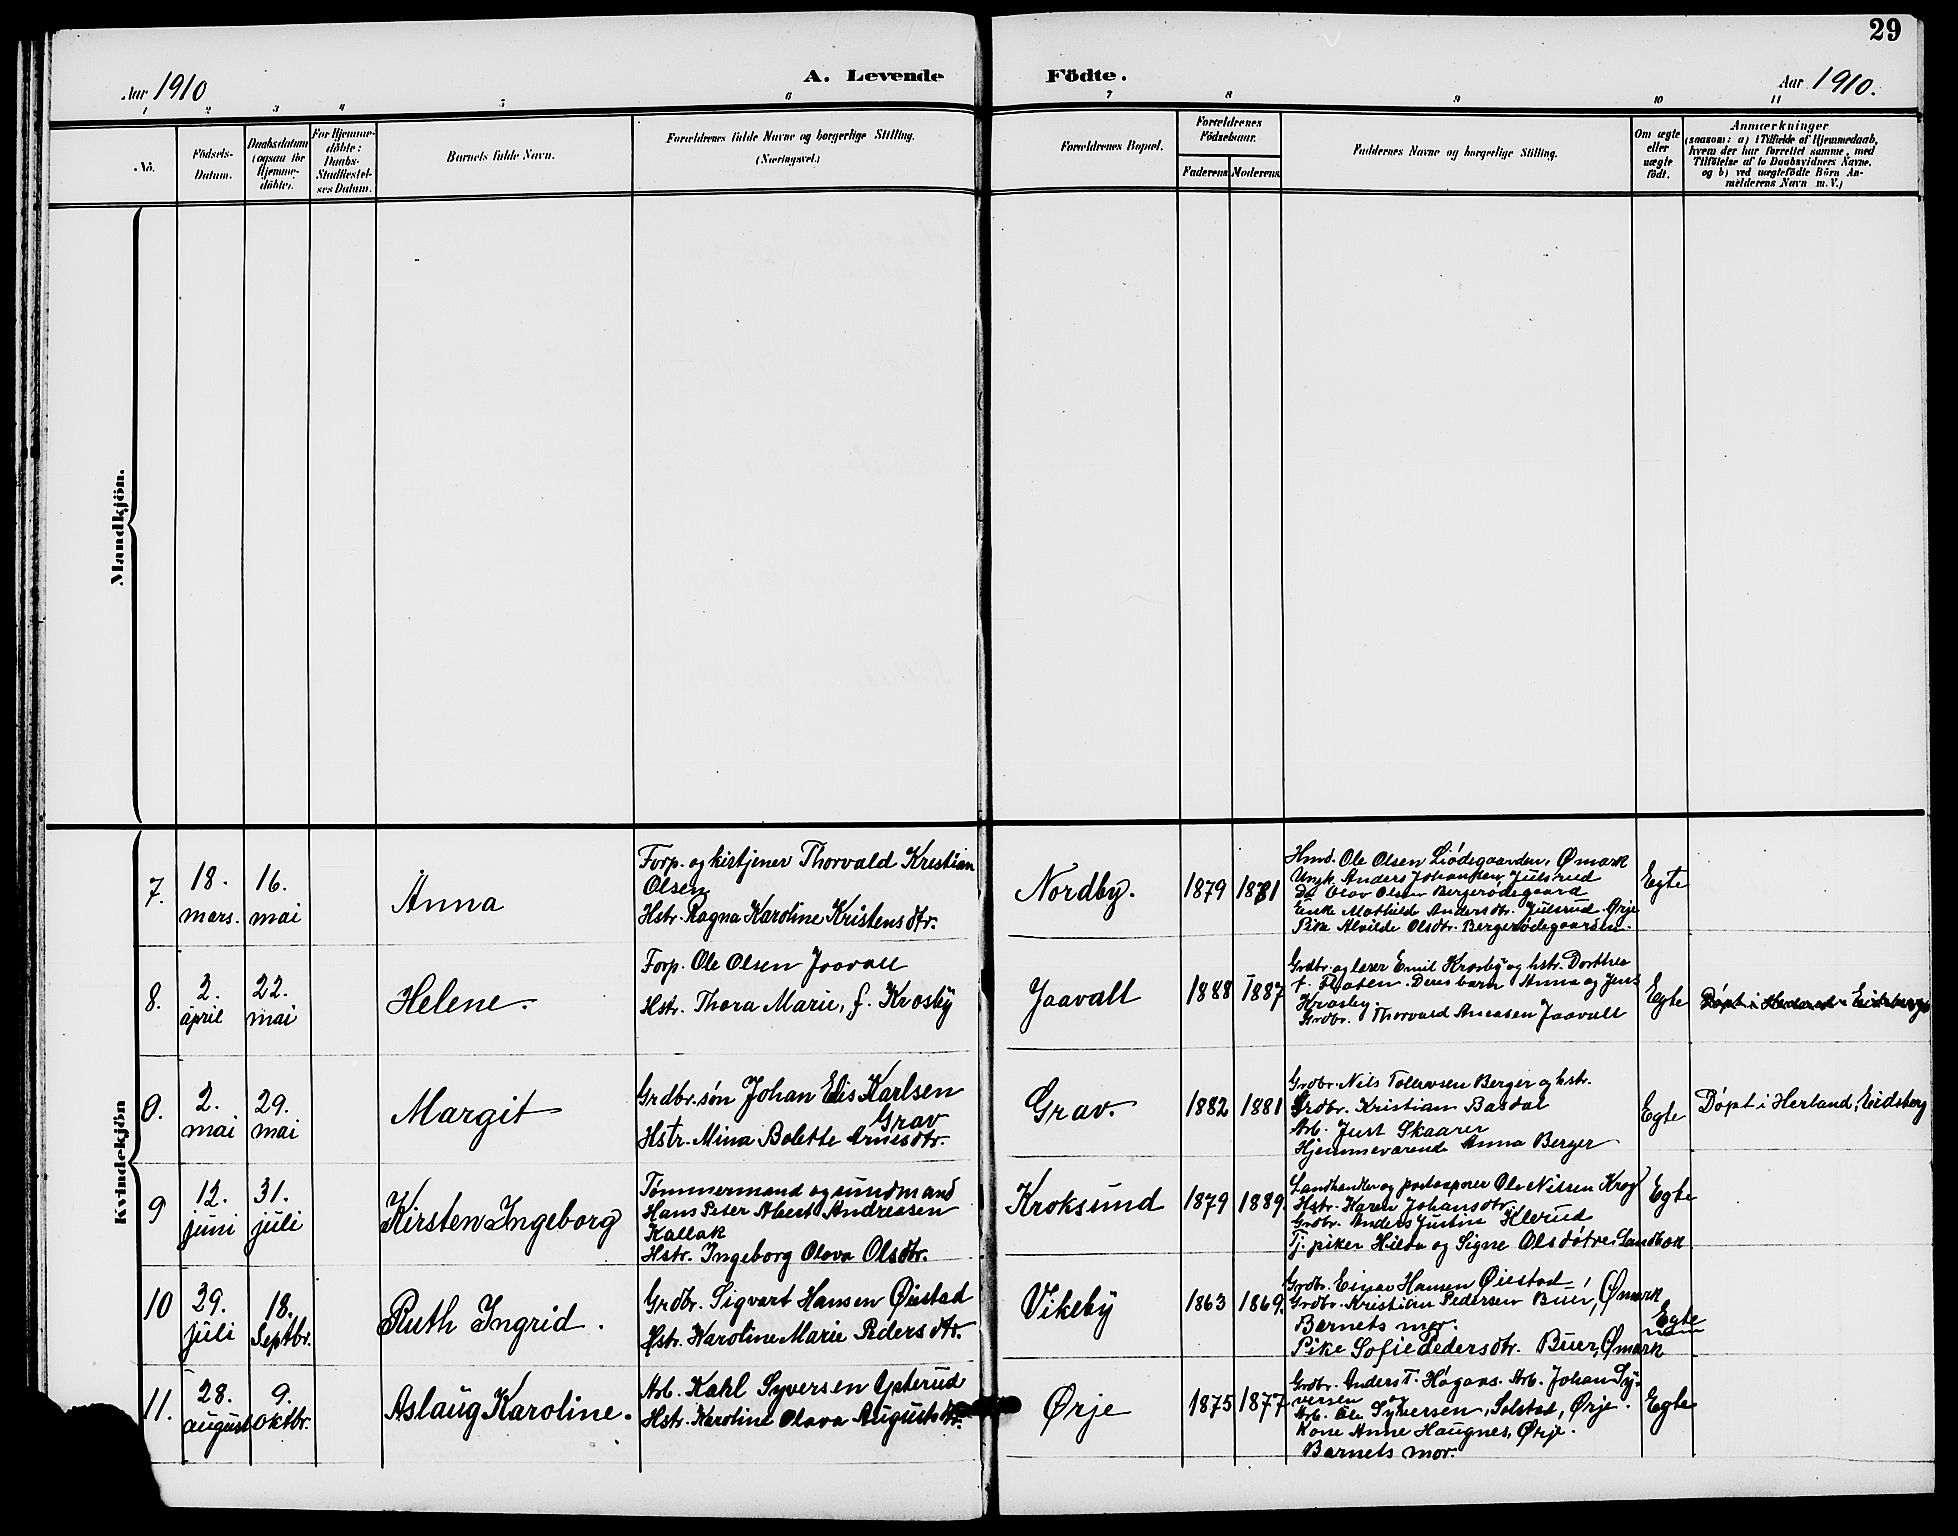 29
Aar 1910
A. Levende Födte.
Aar 1910.
1 2 3 4 5 6 7 8 9 10 11
No.
Födsels-Datum.
Daabsdatum (ogsaa för Hjemme-döbte).
For Hjemme-döbte: Daabs-Stadfæstel-ses Datum.
Barnets fulde Navn.
Forældrenes fulde Navne og borgerlige Stilling.
(Næringsvei.)
Forældrenes Bopæl.
Forældrenes Födselsaar.
Faderens Moderens
Faddernes Navne og borgerlige Stilling.
Om ægte eller uægte födt.
Anmærkninger
(saasom: a) i Tilfælde af Hjemmedaab,
hvem der har forrettet samme, med
Tilföielse af to Daabsvidners Navne.
og b) ved uægtefödte Börn An-
melderens Navn m. V.)
Mandkjön.
Kvindekjön
7. 18. mars. 16. mai
Anna
Forp. og kirtjener Thorvald Kristian
Olsen
Hstr. Ragna Karoline Kristensdtr.
Nordby. 1879 1881
Hmd. Ole Olsen Liødegaarden, Ømark
Ungk. Anders Johansen Julsrud
Do Olav Olsen Bergerødegaard
Enke Mathilde Andersdtr. Julsrud Ørje
Pike Alvilde Olsdtr. Bergerødegaarden.
Egte
8. 2. april 22. mai
Helene.
Forp. Ole Olsen Jaavall
Hstr. Thora Marie, f. Krosby
Jaavall 1888 1887
Grdbr. og lærer Emil Krosby og hstr. Dorthea
f. Fladen. Deres barn Anna og Jens
Krosby.
Grdbr. Thorvald Aneasen Jaavall
Egte
Døpt i Herland i Eidsberg
9. 2. mai 29. mai
Margit
Grdbr.søn Johan Elis Karlsen
Grav
Hstr. Mina Bolette Arnesdtr.
Grav. 1882 1881
Grdbr. Nils Tollevsen Berger og hstr.
Grdbr. Kristian Basdal
Arb. Just Skaarer
Hjemmeværende Anna Berger
Egte
Døpt i Herland, Eidsberg
9 12. juni 31. juli
Kirsten Ingeborg
Tømmermand og sundmand
Hans Peter Albert Andreasen
Kallak
Hstr. Ingeborg Olava Olsdtr.
Kroksund 1879 1889.
Landhandler og postaapner Ole Nilsen Krog
Hstr. Karen Johansdtr.
Grdbr. Anders Justin Klerud
Tj. piker Hilda og Signe Olsdøtre Sandbæk
Egte
10 29. juli 18. Septbr.
Ruth Ingrid.
Grdbr. Sigvart Hansen Øiestad
Hstr. Karoline Marie Pedersdtr.
Vikeby 1863 1869.
Grdbr. Einar Hansen Øiestad
Grdbr. Kristian Pedersen Buer, Ømark
Barnets mor.
Pike Sofie Pedersdtr. Buer, Ømark
Egte
11. 28. august 9. oktbr.
Aslaug Karoline.
Arb. Kahl Syversen Ysterud
Hstr. Karoline Olava Augustsdtr.
Ørje 1875 1877
Grdbr. Anders T. Høgaas. Arb. Johan Sy-
versen og
Arb. Ole Syversen, Solstad, Ørje.
Kone Anne Haugnes, Ørje.
Barnets mor.
Egte